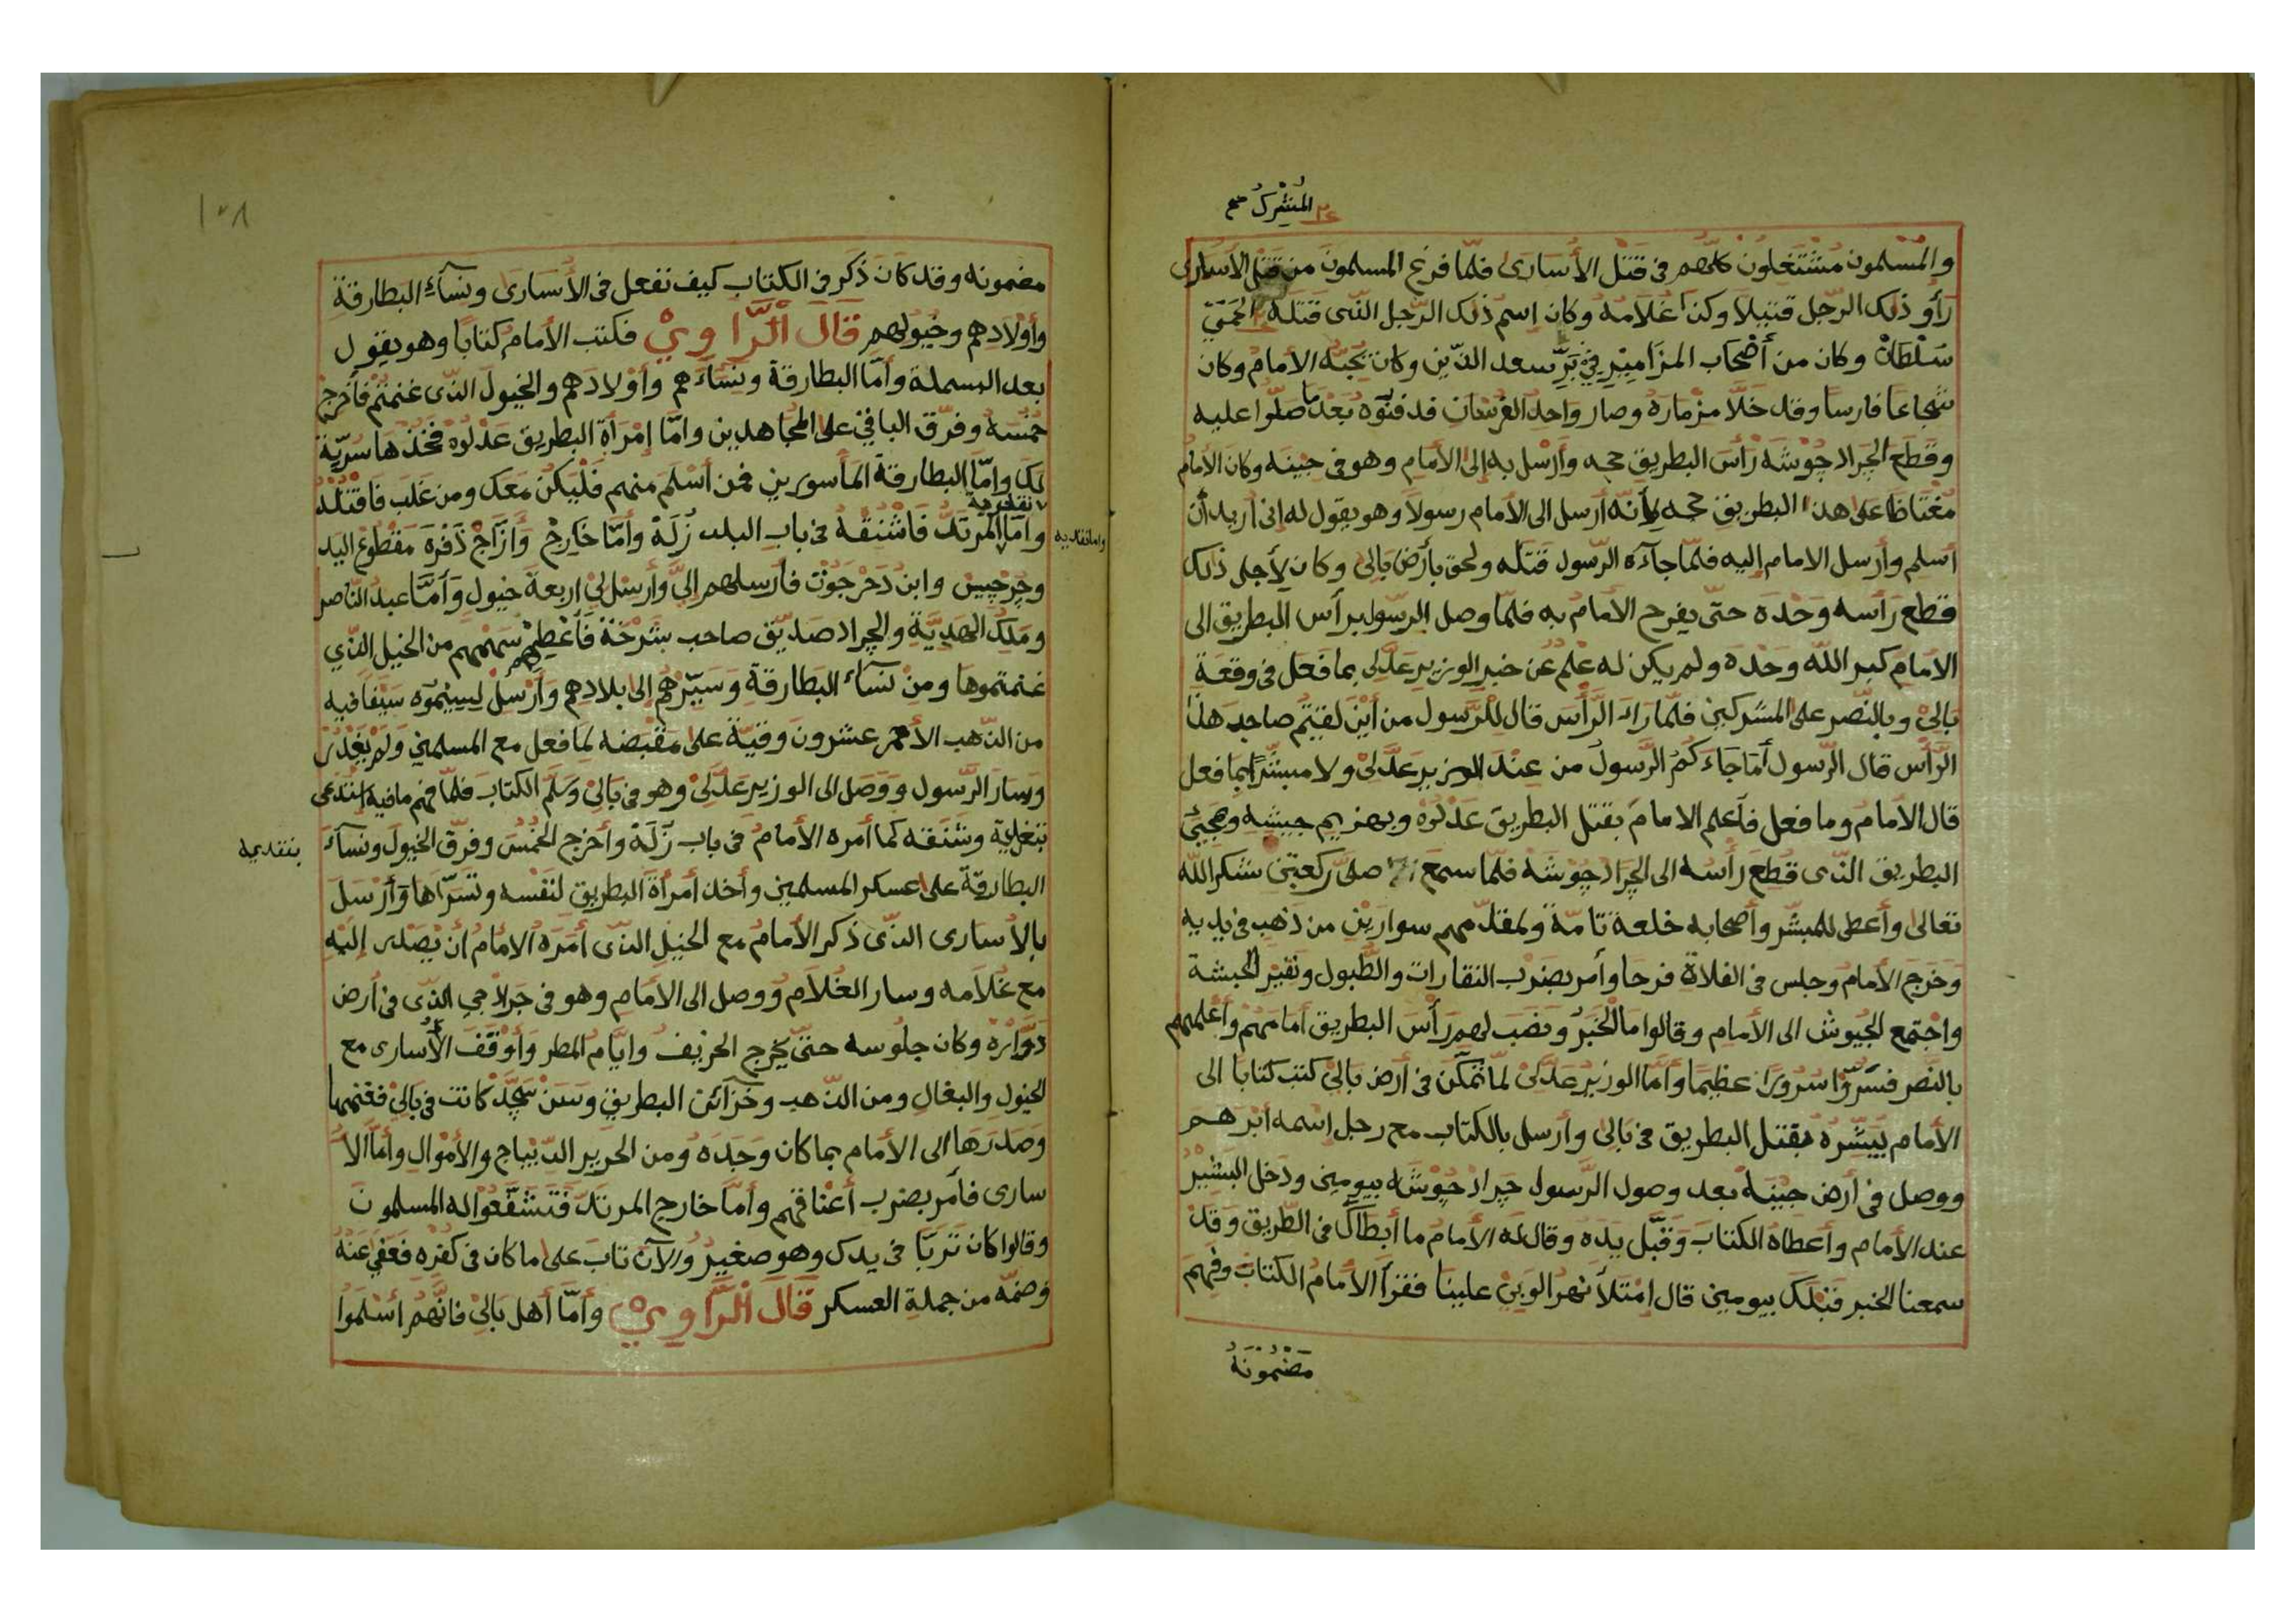 المشرك صح
والمسلمون مشتغلون كلهم في قتل الأسارى فلما فرغ المسلمون من قتل الأسارى
رأو ذلك الرجل قتيلا وكذا غلامه وكان إسم ذلك الرجل الذي قتله
سلطان وكان من أصحاب المزامير في بر سعد الدين وكان يحبه الامام وكان
شجاعا فارسا وقد خلا مزماره وصار واحد الفرسان فدفنوه بعد ما صلوا عليه
وقطع الجراد جوشه رأس البطريق حجه وأرسل به إلى الأمام وهو في جينه وكان الأمام
مغتاظا على هذا البطريق حجه لأنه أرسل الى الأمام رسولا وهو يقول له إني أريد أن
أسلم وأرسل الامام إليه فلما جآءه الرسول قتله ولحق بأرض بالى وكان لأجل ذلك
قطع رأسه وحده حتى يفرح الامام به فلما وصل الرسول برأس البطريق الى
الامام كبر الله وحده ولم يكن له علم عن خبر الوزير عدلى بما فعل في وقعة
بالي وبالنصر على المشركين فلما راء الرأس قال للرسول من أين لقيتم صاحب هذا
الرأس قال الرسول أما جاءكم الرسول من عند الوزير عدلي ولا مبشرا بما فعل
قال الأمام وما فعل فأعلم الامام بقتل البطريق عدلوه وبهزيم جيشه وبمجيئ
البطريق الذى قطع رأسه الى الجراد جوشه فلما سمع صلى ركعتين شكر الله
تعالى وأعطى للمبشر وأصحابه خلعة تامة ولمقدمهم سوارين من ذهب في يديه
وخرج الأمام وجلس في الفلاة فرحا وأمر بضرب النقارات والطبول ونقير الحبشة
واجتمع الجيوش الى الأمام وقالوا ما الخبر ونصب لهم رأس البطريق أمامهم وأعلمهم
بالنصر فسروا سرورا عظيما وأما الوزير عدلى لما تمكن في أرض بالي كتب كتابا الى
الأمام يبشره بقتل البطريق في بالى وأرسل بالكتاب مع رجل اسمه أبرهم
ووصل في أرض جينه بعد وصول الرسول جراد جوشه بيومين ودخل البشير
عند الأمام وأعطاه الكتاب وقبل يده وقال له الأمام ما أبطأك في الطريق وقد
سمعنا الخبر قبلك بيومين قال إمتلأ نهر الوبي علينا فقرأ الامام الكتاب وفهم
مضمونه
١٢٨
مضمونه وقد كان ذكر في الكتاب كيف نفعل في الأسارى ونسآء البطارقة
وأولادهم وخيولهم قال الراوي فكتب الأمام كتابا وهو يقول
بعد البسملة وأما البطارقة ونساءهم وأولادهم والخيول الذى غنمتم فأخرج
خمسه وفرق الباقي على المجاهدين وأما إمرأة البطريق عدلوه فخذها سرية
لك وامّا البطارقة المأسورين فمن أسلم منهم فليكن معك ومن غلب فاقتله
وأما المرتد فاشنقه في باب البلد زلة وأما خارج وأزاج ذفره مقطوع اليد
وامانقديه
وجرجيس وابن دحرجوت فارسلهم إلي وأرسل لي اربعة خيول وأما عبد الناصر
وملك الهدية والجراد صديق صاحب شرخة فأعطهم سهمهم من الخيل الذي
غنمتموها ومن نسآء البطارقة وسيرهم إلى بلادهم وأرسل لسيموه سيفا فيه
من الذهب الأحمر عشرون وقية على مقبضه لما فعل مع المسلمين ولم يغدر
وسار الرسول ووصل الى الوزير عدلى وهو في بالي وسلم الكتاب فلما فهم مافيه
وشنقه كما أمره الأمام في باب زلة وأخرج الخمس وفرق الخيول ونسآء
بنقديه
البطارقة على عسكر المسلمين وأخذ أمرأة البطريق لنفسه وتسراها وأرسل
بالأسارى الذى ذكر الأمام مع الخيل الذى أمره الامام أن يصلى إليه
مع غلامه وسار الغلام ووصل الى الأمام وهو في جراد حي الذى في أرض
دواره وكان جلوسه حتى يخرج الخريف وايام المطر وأوقف الأسارى مع
الخيول والبغال ومن الذهب وخزآئن البطريق وسن كانت في بالي فغنمها
وصدرها الى الأمام بما كان وجده ومن الحرير الديباج والأموال وأما الأ
سارى فأمر بضرب أعناقهم وأما خارج المرتد فتشفعوا له المسلمون
وقالوا كان تربا في يدك وهو صغير والآن تاب على ما كان في كفره فعفي عنه
وضمه من جملة العسكر قال الراوي وأما أهل بالي فانهم أسلموا